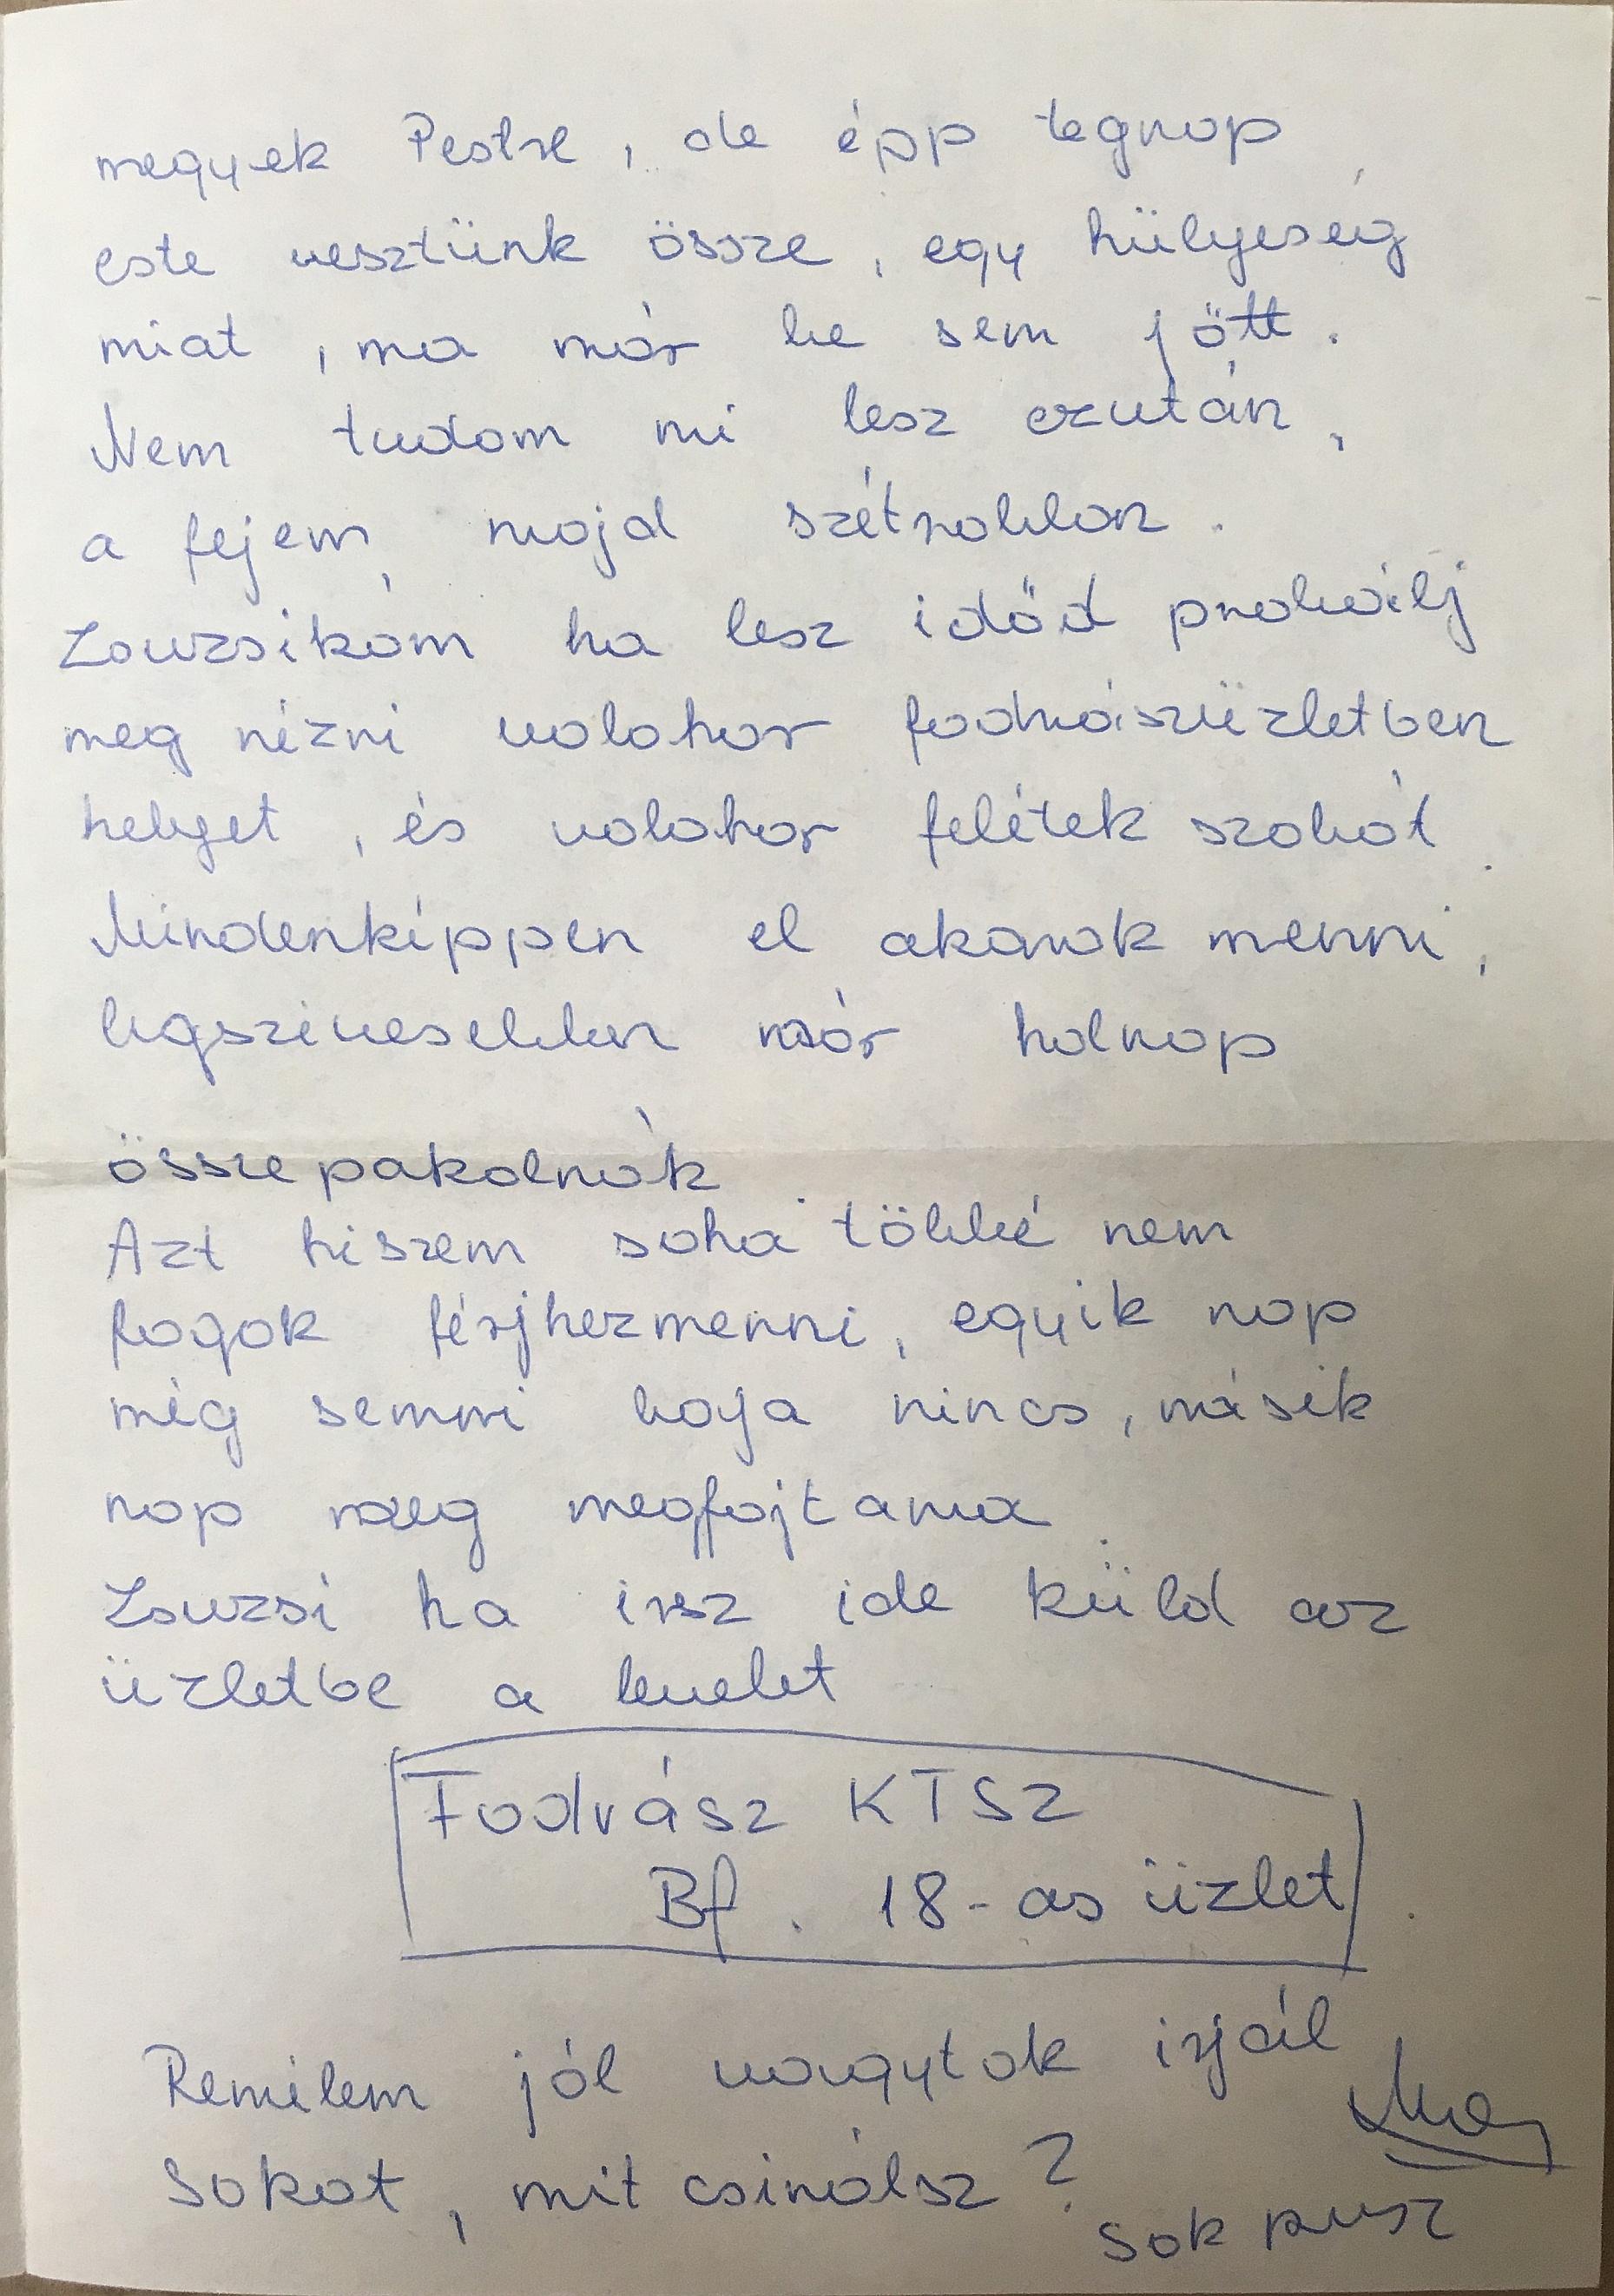 megyek Pestre, de épp tegnap
este vesztünk össze, egy hülyeség
miat, ma már be sem jött.
Nem tudom mi lesz ezután,
a fejem majd szétrobban.
Zsuzsikám ha lesz időd probálj
meg nézni valahor fodrászüzletben
helyet, és valahor felétek szobát.
Mindenképpen el akarok menni,
legszivesebben már holnap
összepakolnák.
Azt hiszem soha többé nem
fogok férjhezmenni, egyik nap
még semmi baja nincs, másik
nap meg megfojtana.
Zsuzsi ha irsz ide küld az
üzletbe a levelet
Fodrász KTSZ
Bf. 18-as üzlet.
Remélem jól vagytok irjál
sokat, mit csinálsz?
sok pusz